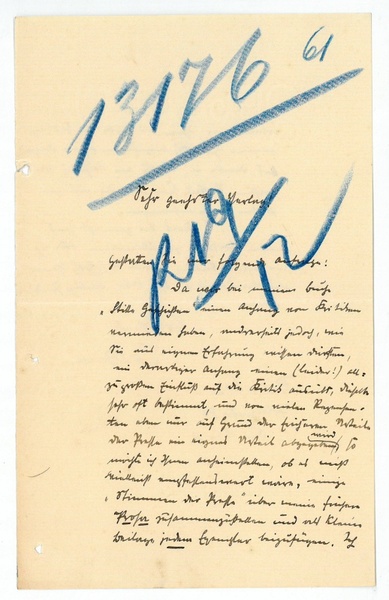 13176 61
Sehr geehrter Verlag!
12
Gestatten Sie mir folgende Anfrage:
Da wir bei meinem Buche
"Stille Geschichten" einen Anhang von Kritiken
vermieden haben, andrerseits jedoch, wie
Sie aus eigener Erfahrung wissen dürften,
ein derartiger Anhang einen (leider!) all-
zu großen Einfluß auf die Kritik ausübt, dieselbe
sehr oft bestimmt, und von vielen Rezensen-
ten aber nur auf Grund der früheren Urteile
der Presse ein eignes Urteil abgegeben wird, so
möchte ich Ihnen anheimstellen, ob es nicht
vielleicht empfehlenswert wäre, einige
"Stimmen der Presse" über meine frühere
Prosa zusammenzustellen und als kleine
Beilage jedem Exemplar beizufügen. Ich